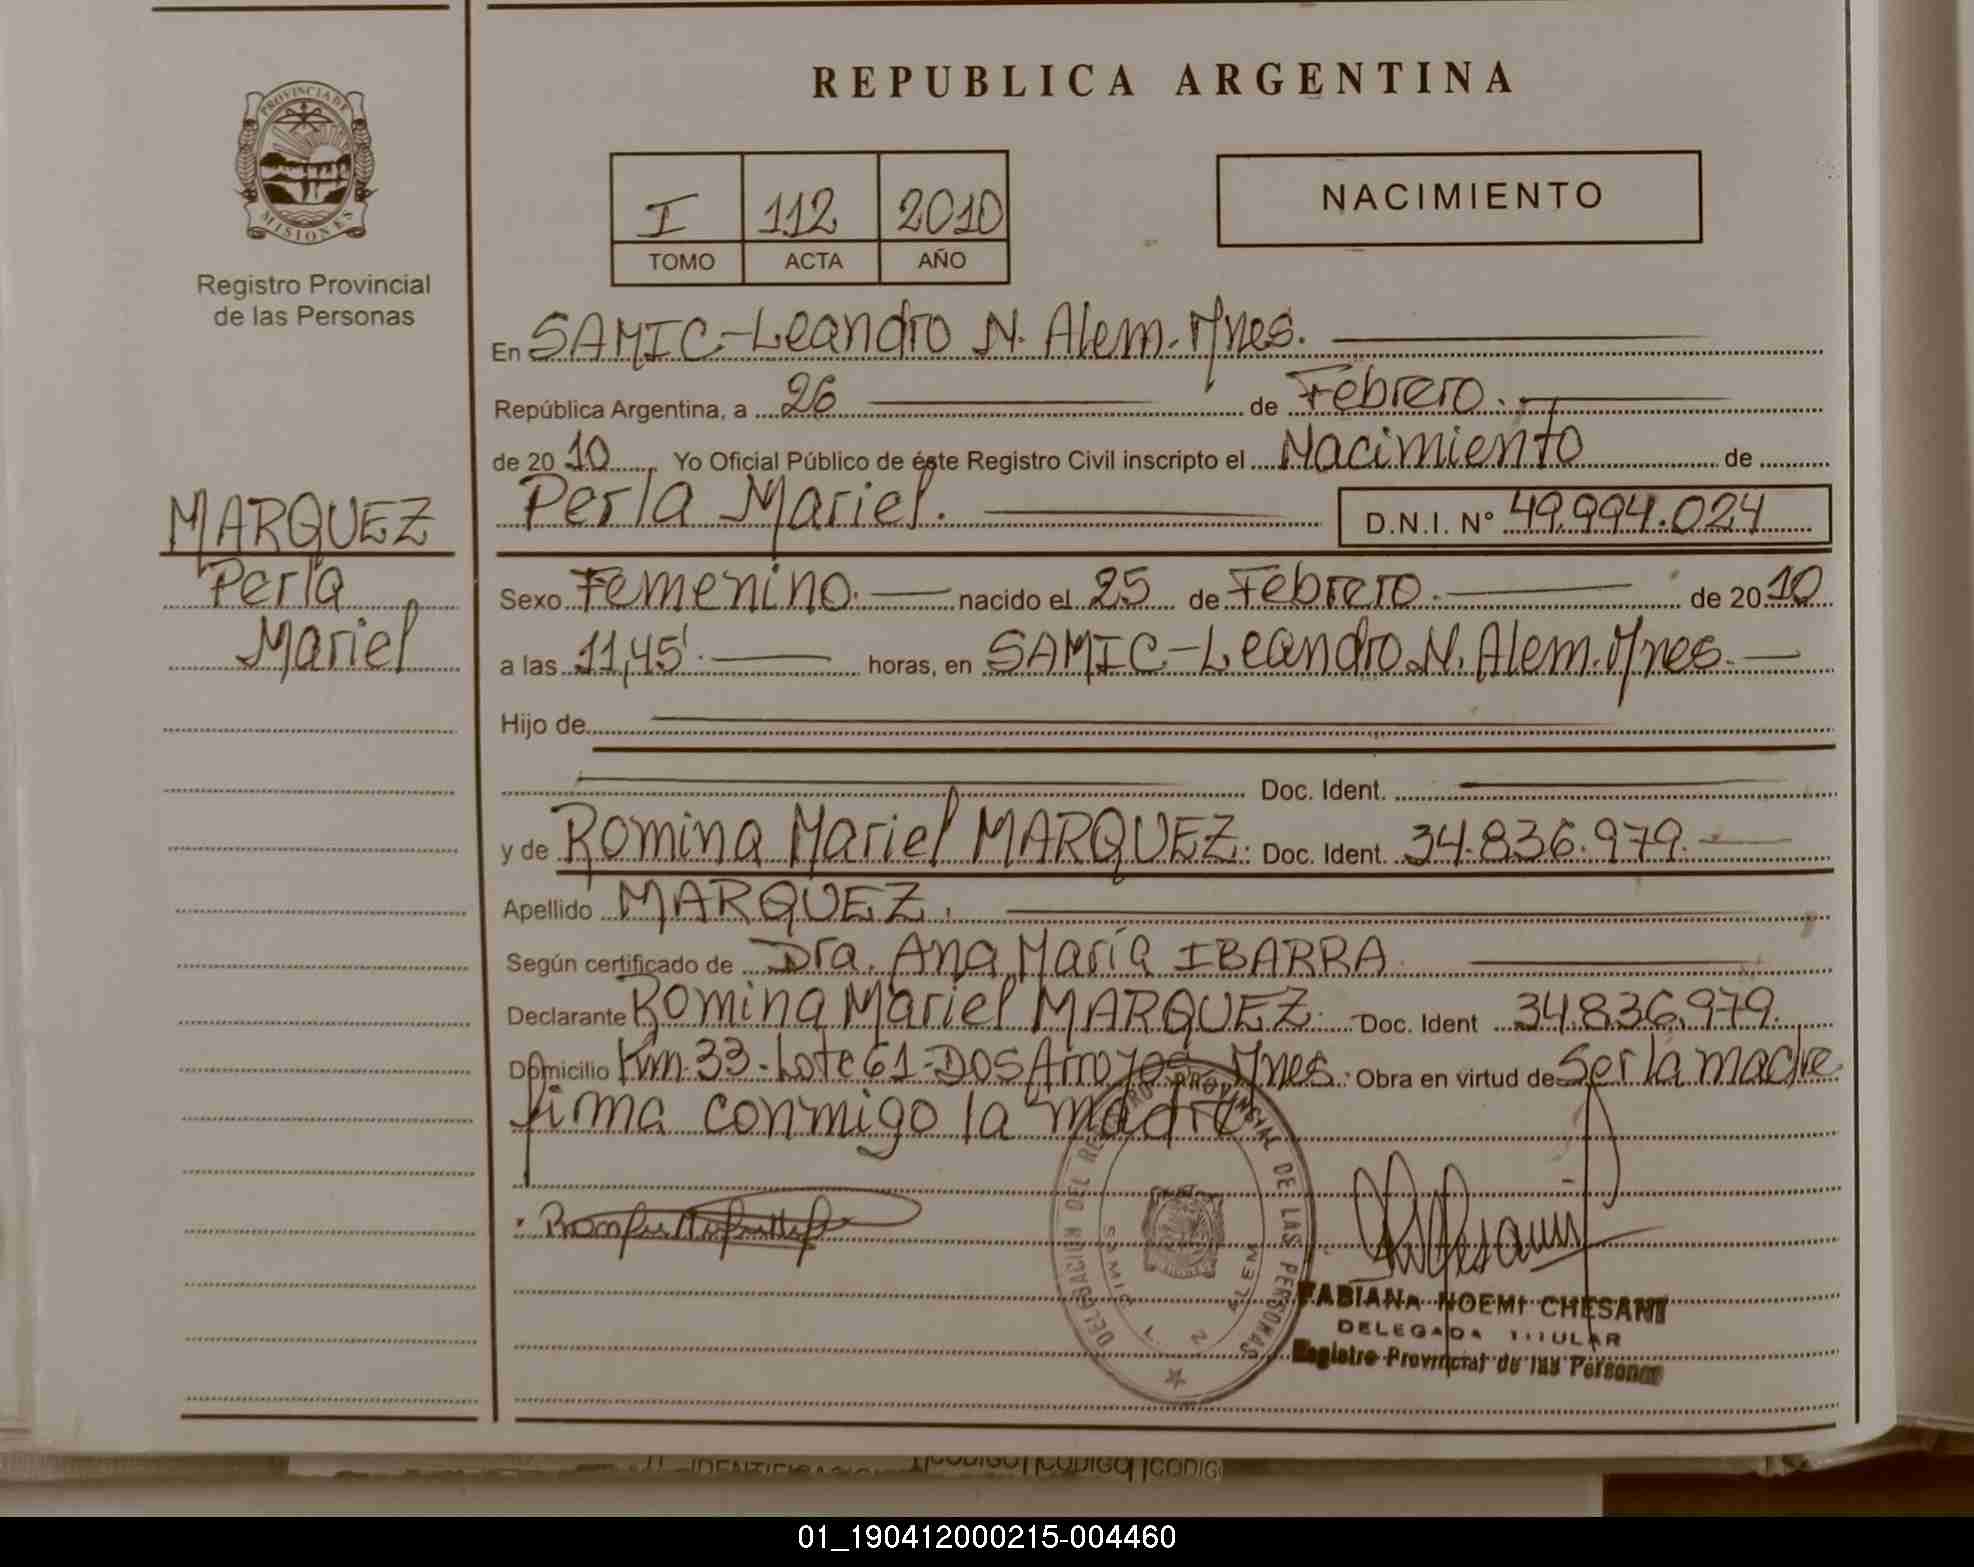 REPUBLICA ARGENTINA
PROVINCIA DE
MISIONES
Registro Provincial
de las Personas
I 112 2010
TOMO ACTA AÑO
NACIMIENTO
En SAMIC-Leandro N. Alem. Mnes.
República Argentina, a 26 de Febrero.
de 2010 Yo Oficial Público de éste Registro Civil inscripto el Nacimiento de
Perla Mariel. D.N.I. N° 49.994.024
MARQUEZ
Perla
Mariel
Sexo Femenino. nacido el 25 de Febrero. de 2010
a las 11,45'. horas, en SAMIC-Leandro.N. Alem. Mnes.
Hijo de
Doc. Ident.
y de Romina Mariel MARQUEZ. Doc. Ident. 34.836.979.
Apellido MARQUEZ.
Según certificado de Dra. Ana María IBARRA
Declarante Romina Mariel MARQUEZ. Doc. Ident 34.836.979.
Domicilio Km.33-Lote 61-Dos Arroyos Mnes. Obra en virtud de Ser la madre
firma conmigo la madre
DELEGACION DEL REGISTRO PROVINCIAL DE LAS PERSONAS
SAMIC L. N. ALEM
FABIANA NOEMI CHESANI
DELEGADA TITULAR
Registro Provincial de las Personas
01_190412000215-004460